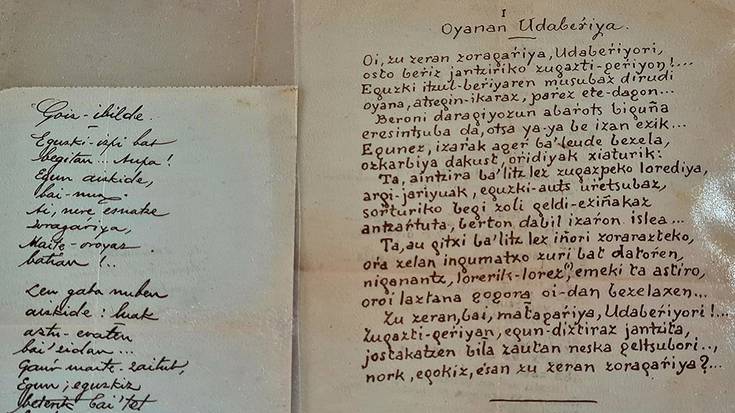 Goix-ibilde
Eguzki-izpi bat
begitan... Aupa!
Egun aizkide,
bai-
Ai, nere esnatze
zoragaŕiya,
Maite-oroyaz
batian!..
Len gaba nuben
aizkide: luak
aztu-eraten
bai'zidan...
Gaur maite-zaitut,
Egun; eguzkiz
beterik bai'tet
I
Oyanan Udabeŕiya.
Oi, zu zeran zoragaŕiya, Udabeŕiyori,
osto beŕiz jantziriko zugazti-geŕiyon!...
Eguzki itzul-beŕiyaren musubaz dirudi
oyana, atsegin-ikaraz, parez ete-dagon...
Beroni daragiyozun abarots biguña
eresintsuba da, otsa ya-ya be izan ezik...
Egunez, izaŕak ageŕ ba'leude bezela,
ozkarbiya dakust, oridiyak xiaturik:
Ta, aintzira ba'litz lez zugazpeko lorediya,
argi-jariyuak, eguzki-auts uretsubaz,
sorturiko begi zoli geldi-eziñakaz
antzaŕtuta, berton dabil izaŕon islea...
Ta, au gitxi ba'litz lez iñori zorarazteko,
oŕa zelan ingumatxo zuri bat datoŕen,
niganantz, lorerik-lorez, emeki ta astiro,
oroi laztana gogora oi-dan bezelaxen...
Zu zeran, bai, maitagaŕiya, Udabeŕiyori!...
Zugazti-geŕiyan, egun-diztiraz jantzita,
jostakatzen bila zautan neska geltsubori..,
nork, egokiz, esan zu zeran zoragaŕiya?...